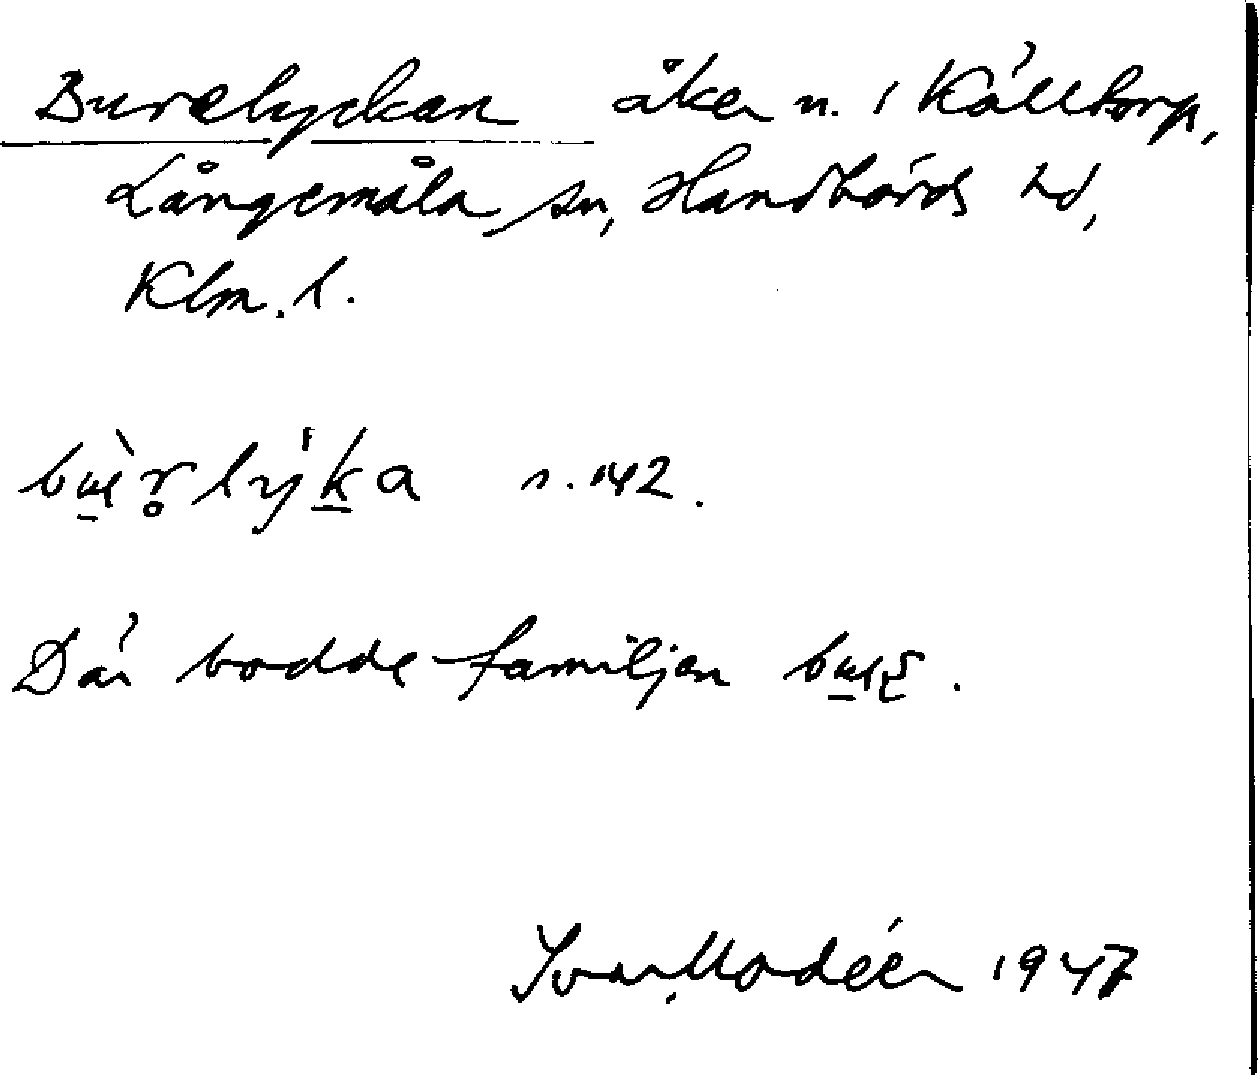 Burelyckan åker n. i Källtorp,
Långemåla sn, Handbörds hd,
Klm. l.
s. 142.
Där bodde familjen
Ivar Modéer 1947